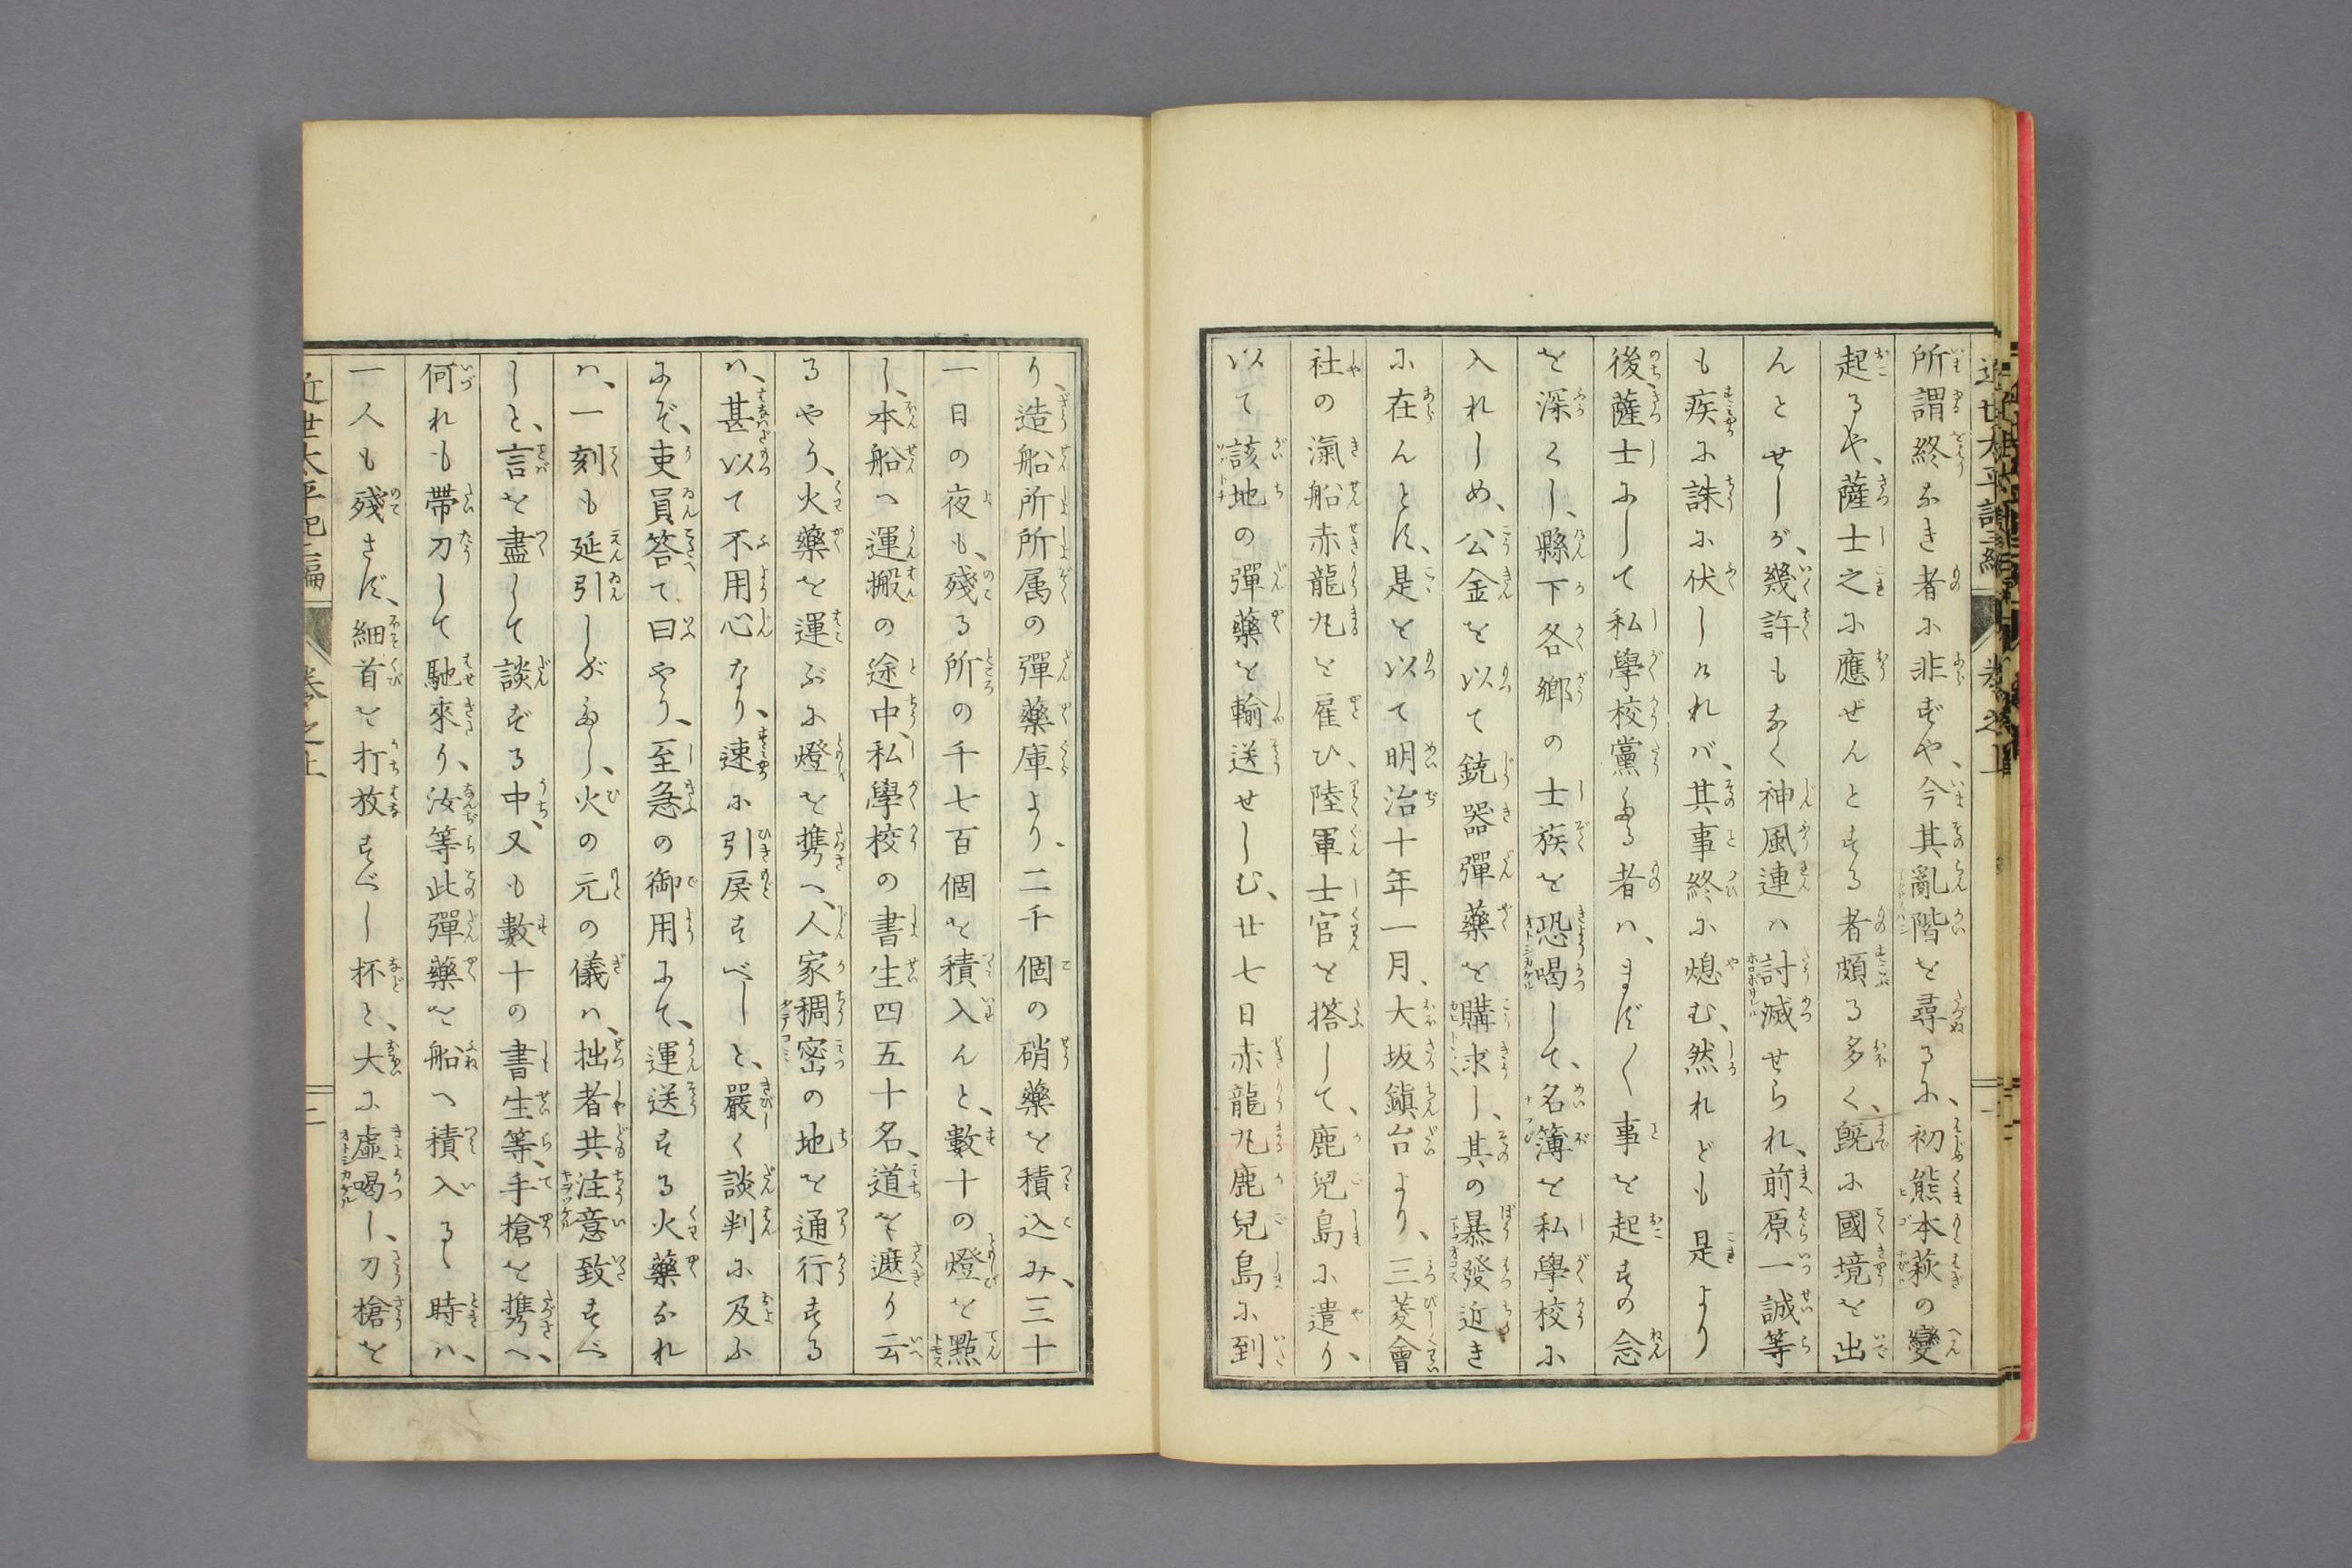 所謂終なき者に非ずや、今其亂階を尋るに、初熊本萩の變
起るや、薩士之に應ぜんとする者頗る多く、既に國境を出
んとせしが、幾許もなく神風連ハ討滅せられ、前原一誠等
も疾に誅に伏しけれバ、其事終に熄む、然れども是より
後薩士にして私學校黨たる者ハ、ます〱事を起すの念
を深くし、縣下各鄉の士族を恐喝して、名簿を私學校に
入れしめ、公金を以て銃器彈藥を購求し、其の暴發近き
に在んとす、是を以て明治十年一月、大坂鎮台より、三菱會
社の滊船赤龍丸を雇ひ、陸軍士官を撘して、鹿兒島に遣り、
以て該地の彈藥を輸送せしむ、廿七日赤龍丸鹿兒島に到
り、造船所所属の彈藥庫より、二千個の硝藥を積込み、三十
一日の夜も、殘る所の千七百個を積入んと、數十の燈を點
し、本船へ運搬の途中、私學校の書生四五十名、道を遮り云
るやう、火藥を運ぶに燈を携へ、人家稠密の地を通行する
ハ、甚以て不用心なり、速に引戻すべしと、嚴く談判に及ふ
にぞ、吏員答て曰やう、至急の御用にて、運送する火藥なれ
ハ、一刻も延引しがたし、火の元の儀ハ、拙者共注意致すべ
しと、言を盡して談ずる中、又も數十の書生等、手槍を携へ、
何れも帶刀して馳來り、汝等此彈藥を船へ積入るゝ時ハ、
一人も殘さず、細首を打放すべし杯と、大に虛喝し、刀槍を
近世太平記二編 卷之上 二